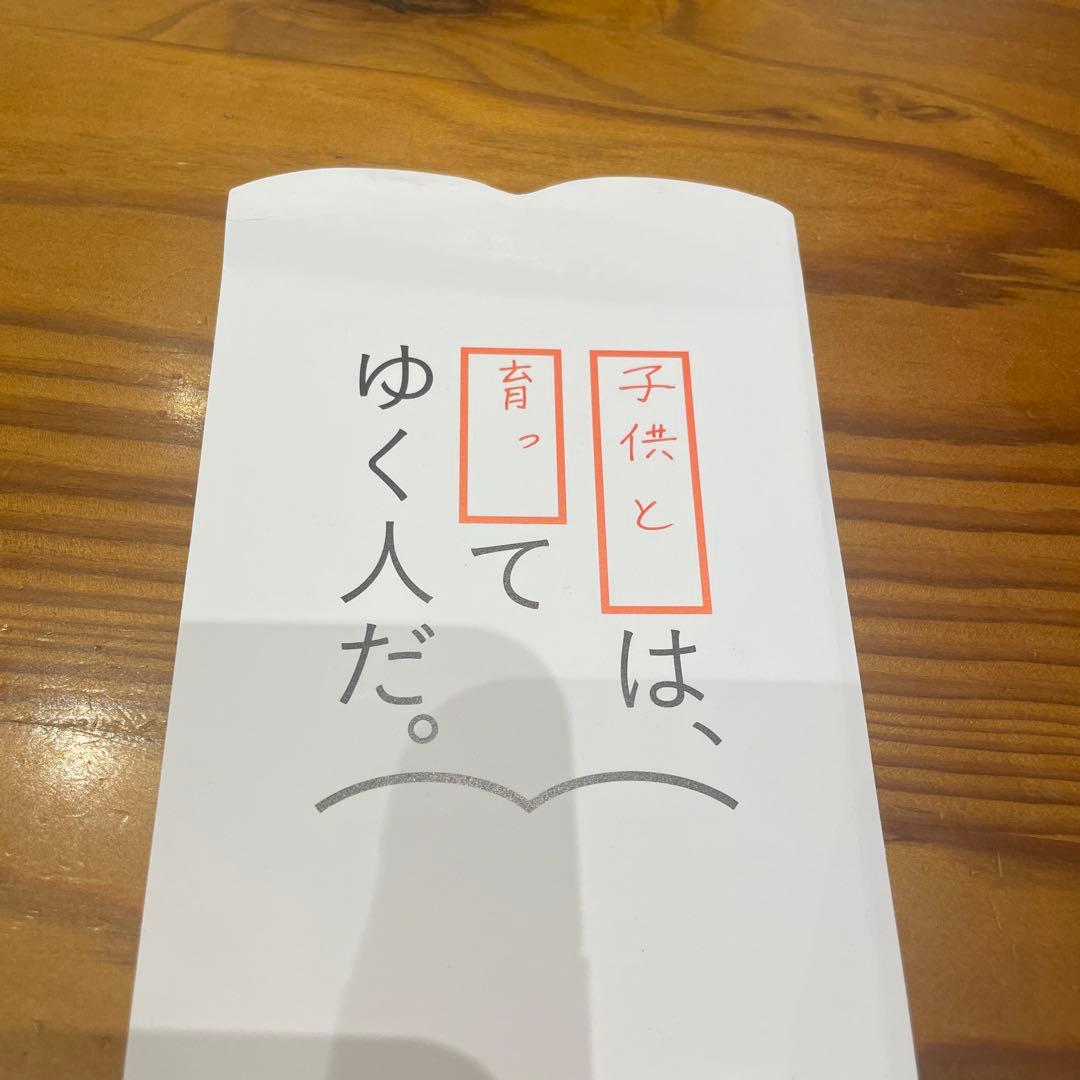 子供とは、
育って
ゆく人だ。